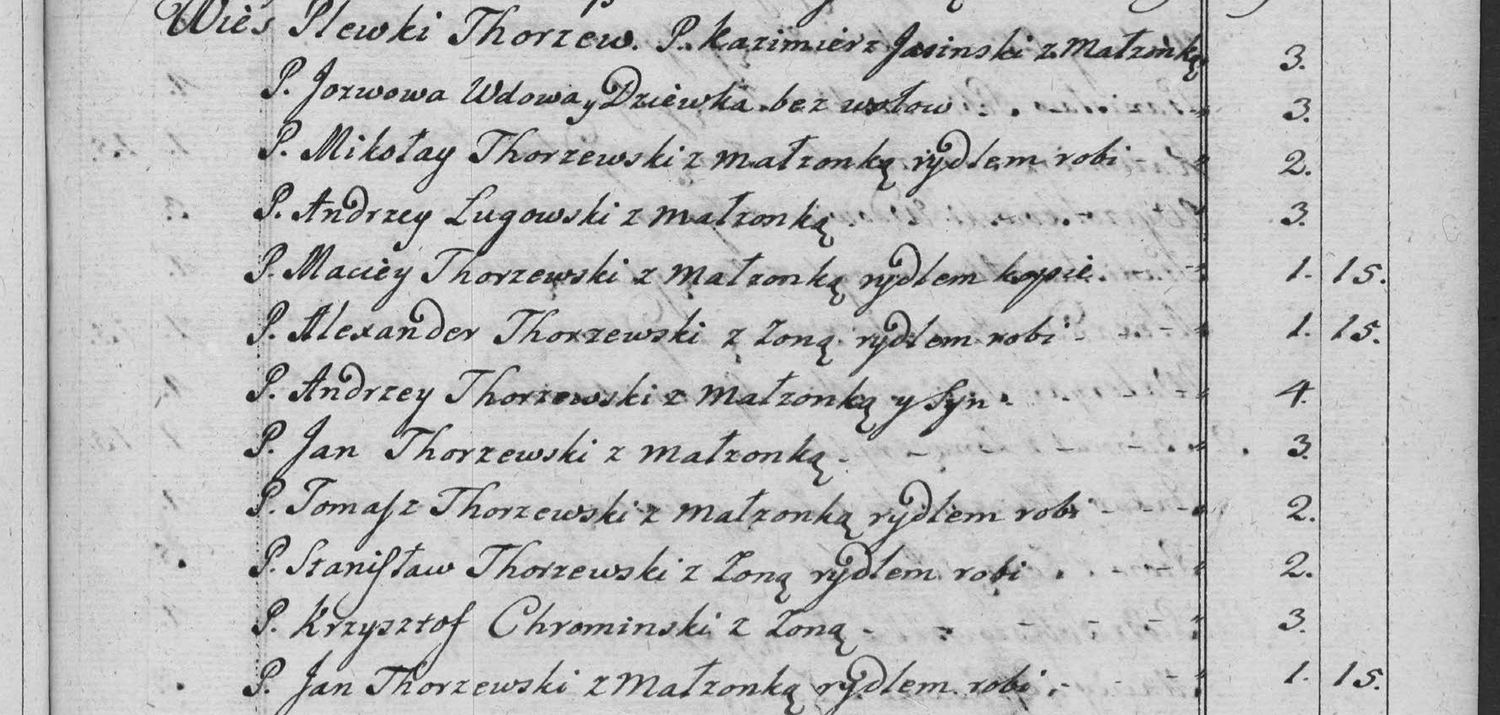 Wieś Plewki Thorzew. P. Kazimierz Jasinski z Małzonką 3.
P. Jozwowa Wdowa y Dziewka bez wołow 3.
P. Mikołay Thorzewski z małzonką rydlem robi 2.
P. Andrzey Lugowski z małzonką 3.
P. Maciey Thorzewski z małzonką rydlem kopie. 1. 15.
P. Alexander Thorzewski z Zoną rydlem robi 1. 15.
P. Andrzey Thorzewski z małzonką y Syn 4.
P. Jan Thorzewski z małzonką 3.
P. Tomasz Thorzewski z małzonką rydlem robi 2.
P. Stanisław Thorzewski z Zoną rydlem robi 2.
P. Krzysztof Chrominski z Zoną 3.
P. Jan Thorzewski z Małzonką rydlem robi 1. 15.